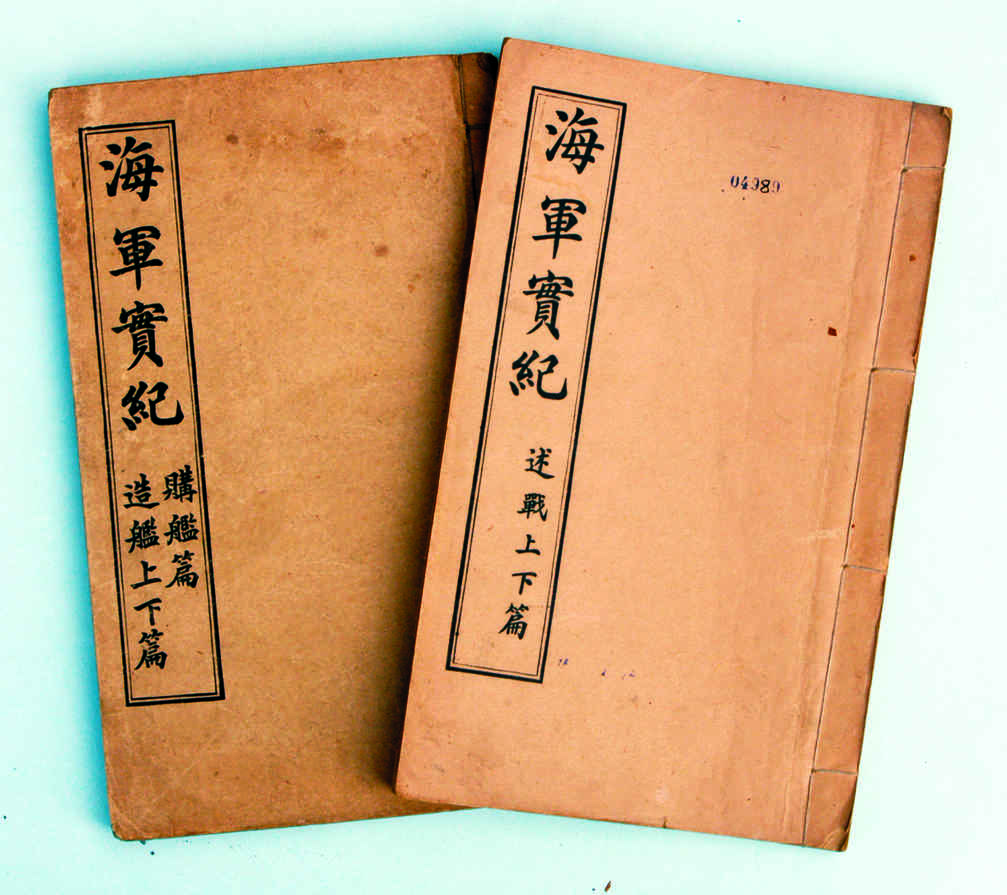 海軍實紀
購艦篇
造艦上下篇
海軍實紀
述戰上下篇
04989